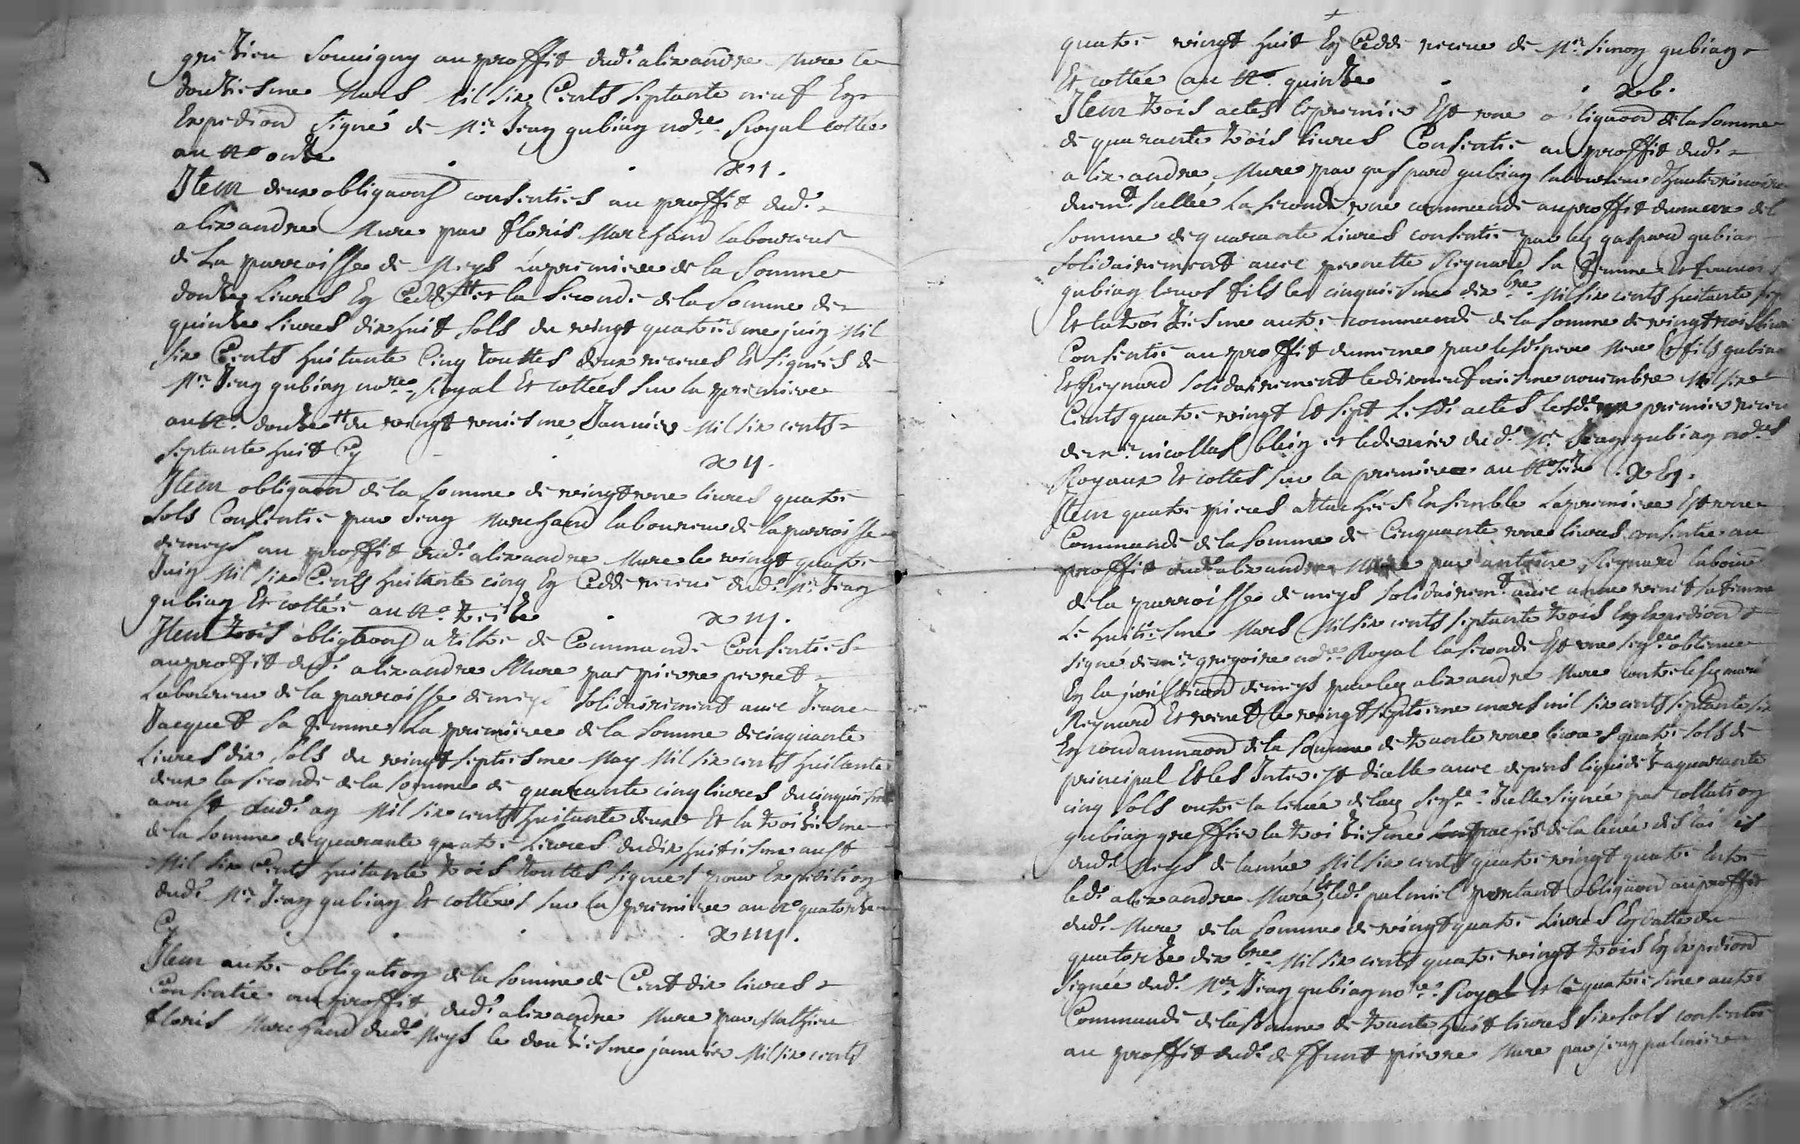 au proffit dud.t alixandre Mure le
douziesme Mars Mil six Cents septante neuf En
Expediond signé de M.re Jean gubian no.re Royal cottée
au N.o onze
x1.
Item deux obligaons consenties au proffit dud.t
alixandre Mure par floris Marchand laboureur
de La parroisse de Meys La premiere de la Somme
douze Livres En Cedde et la seconde de la Somme de
quinze Livres dix huit sols du vingt quatriesme juin Mil
six Cents huitante Cinq touttes deux receues Et signées de
M.re Jean gubian no.re Royal Et cottées sur la premiere
au N.o douze du vingt uniesme Janvier Mil six cents
septante huit Cy
x11.
Item obligaon de la somme de vingt une livres quatre
sols Consentie par Jean Marchand laboureur de la parroisse
de meys au proffit dud.t alixandre Mure le vingt quatre
Juin Mil six Cents huitante cinq En Cedde receue dud.t M.re Jean
gubian Et cottée au N.o treize
x111.
Item trois obligaons a tiltre de Commande Consenties
au proffit dud.t alixandre Mure par pierre
Laboureur de la parroisse de meys solidairement avec
Jacquet sa femme La premiere de la somme de cinquante
Livres dix sols du vingt septiesme May Mil six cents huitante
deux la seconde de la somme de quarante cinq livres du cinquiesme
aoust dud.t an Mil six cents huitante deux Et la troiziesme
de la somme de quarante quatre Livres du dix huitiesme aust
Mil six Cents huitante trois touttes signees pour Expedition
dud.t M.re Jean gubian Et cottées sur la premiere au N.o quatorze
Cy
x1111.
Item autre obligation de la somme de Cent dix livres
Consentie au proffit dud.t alixandre Mure par Mathieu
floris Marchand dud.t Meys le douziesme janvier Mil six cents
quatre vingt huit En Cedde receue de M.re Simon gubian
Et cottée au N.o quinze
xv.
Item trois actes le premier Est une obligaond de la somme
de quarante trois livres Consentie au proffit dud.t
alixandre Mure par gaspard gubian laboureur
la seconde une commande au proffit du meme de la
somme de quarante Livres consentie par led. gaspard gubian
solidairement avec pernette Reynard sa femme Et francois
gubian leurs fils le cinquiesme dix.bre Mil six cents huitante
Et la troiziesme autre commande de la somme de vingt trois livres
Consentie au proffit du meme par lesd. pere Mere Et fils gubian
Et Reynard solidairement le dix neufviesme novembre Mil six
Cents quatre vingt Et sept Lesd. actes le premier receu
de M.re nicollas et le dernier dud.t M.re Jean gubian no.res
Royaux Et cottes sur la premiere au N.o seize
xv1.
Item quatre pieces attachées Ensemble La premiere Est une
Commande de la somme de Cinquante une livres consentie au
proffit dud.t alixandre Mure par antoine Reynard laboureur
de la parroisse de meys solidairem.t avec anne sa femme
Le huitiesme Mars Mil six cents septante trois En Expediond
signé de M.re gregoire no.re Royal la seconde Est une obtenue
En la jurisdiction de meys par led. alixandre Mure contre lesd. mariés
Reynard Et le vingt septiesme mars mil six cents septante six
En condamnaond de la somme de trante une livres quatre sols de
principal Et les Interest dicelle avec depens liquidé a quarante
cinq sols outre la levée de lad. Icelle signée par collation
gubian greffier la troiziesme de la levée
dud.t Meys de lannée Mil six cents quatre vingt quatre Entre
led.t alixandre Mure Et led.t portant obligaond au proffit
dud.t Mure de la somme de vingt quatre Livres En datte du
quatorze dix.bre Mil six cents quatre vingt trois En Expediond
signée dud.t M.re Jean gubian no.re Royal et la quatriesme autre
Commande de la somme de trante huit livres six sols consentie
au proffit dud.t deffunt pierre Mure par Jean